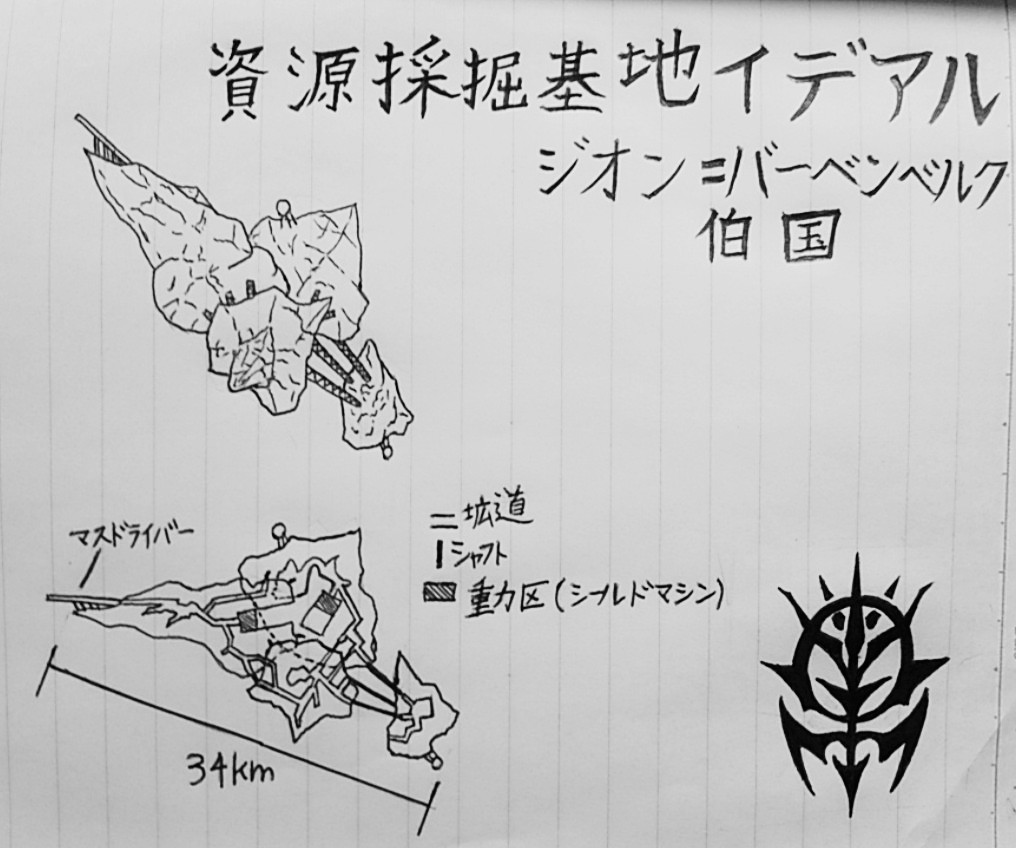 資源採掘基地イデアル
ジオン=バーベンベルク
伯国
マスドライバー
=坑道
シャフト
重力区(シールドマシン)
34km